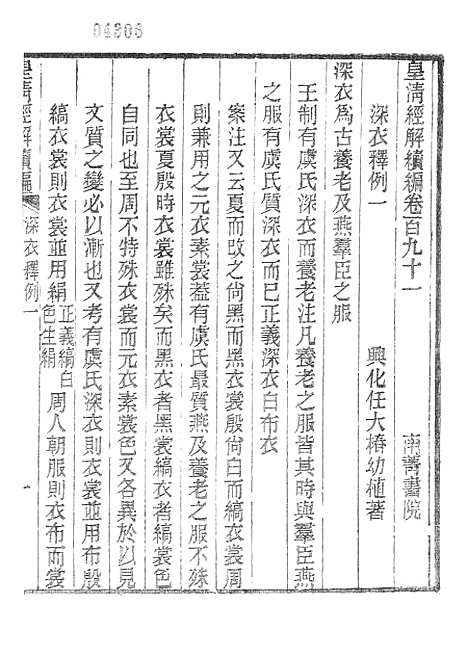 04306
皇淸經解續編卷百九十一 南菁書院
深衣釋例一 興化任大椿幼植著
深衣爲古養老及燕羣臣之服
王制有虞氏深衣而養老注凡養老之服皆其時與羣臣燕
之服有虞氏質深衣而已正義深衣白布衣
案注又云夏而改之尙黑而黑衣裳殷尙白而縞衣裳周
則兼用之元衣素裳蓋有虞氏最質燕及養老之服不殊
衣裳夏殷時衣裳雖殊矣而黑衣者黑裳縞衣者縞裳色
自同也至周不特殊衣裳而元衣素裳色又各異於以見
文質之變必以漸也又考有虞氏深衣則衣裳並用布殷
縞衣裳則衣裳並用絹正義縞白色生絹周人朝服則衣布而裳
皇淸經解續編 深衣釋例一 一